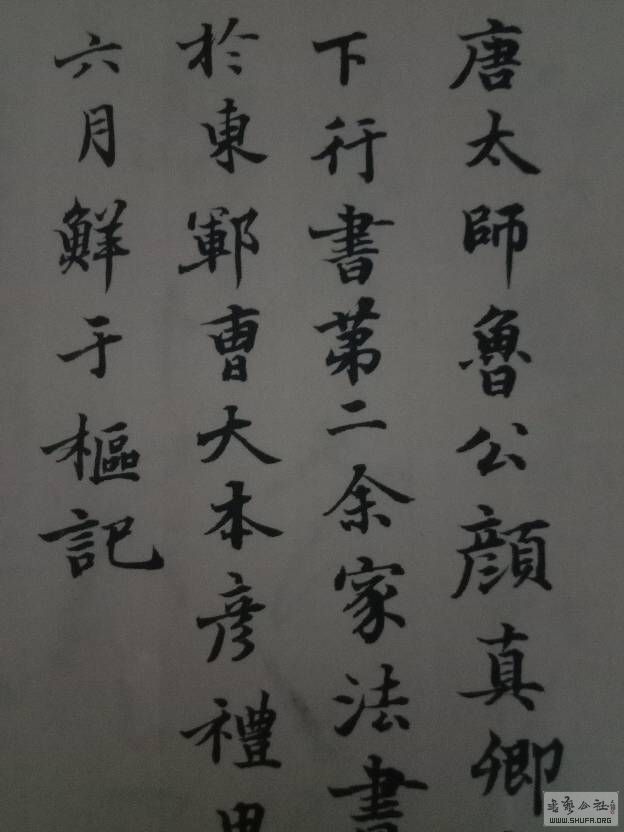 唐太師魯公顏真卿
下行書第二余家法書
於東鄆曹大本彦禮
六月鮮于樞記
WWW.SHUFA.ORG